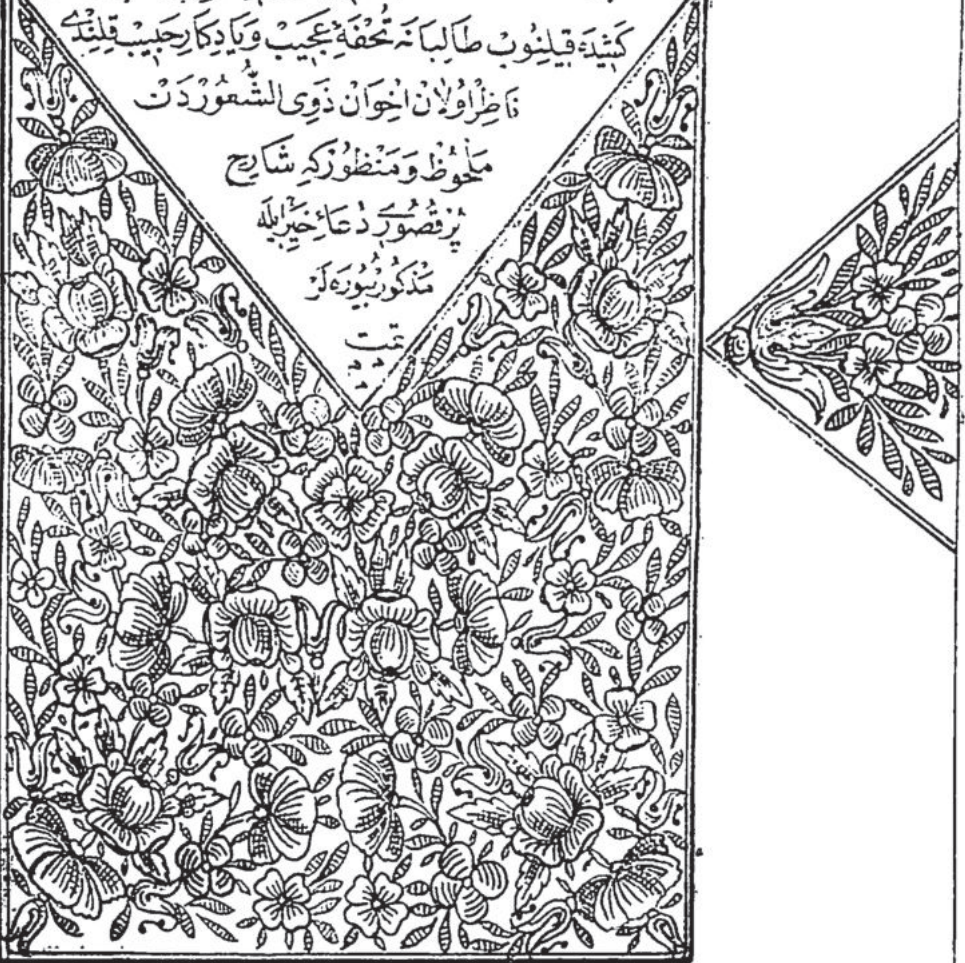 كشيدۀ قيلنوب طالبانه تحفۀ عجيب و يادكار حبيب قلندى
ناظر اولان اخوان ذوى الشعوردن
ملحوظ و منظوردركه شارح
پر قصورى دعاء خير ايله
مذكور بيوره لر
تمت